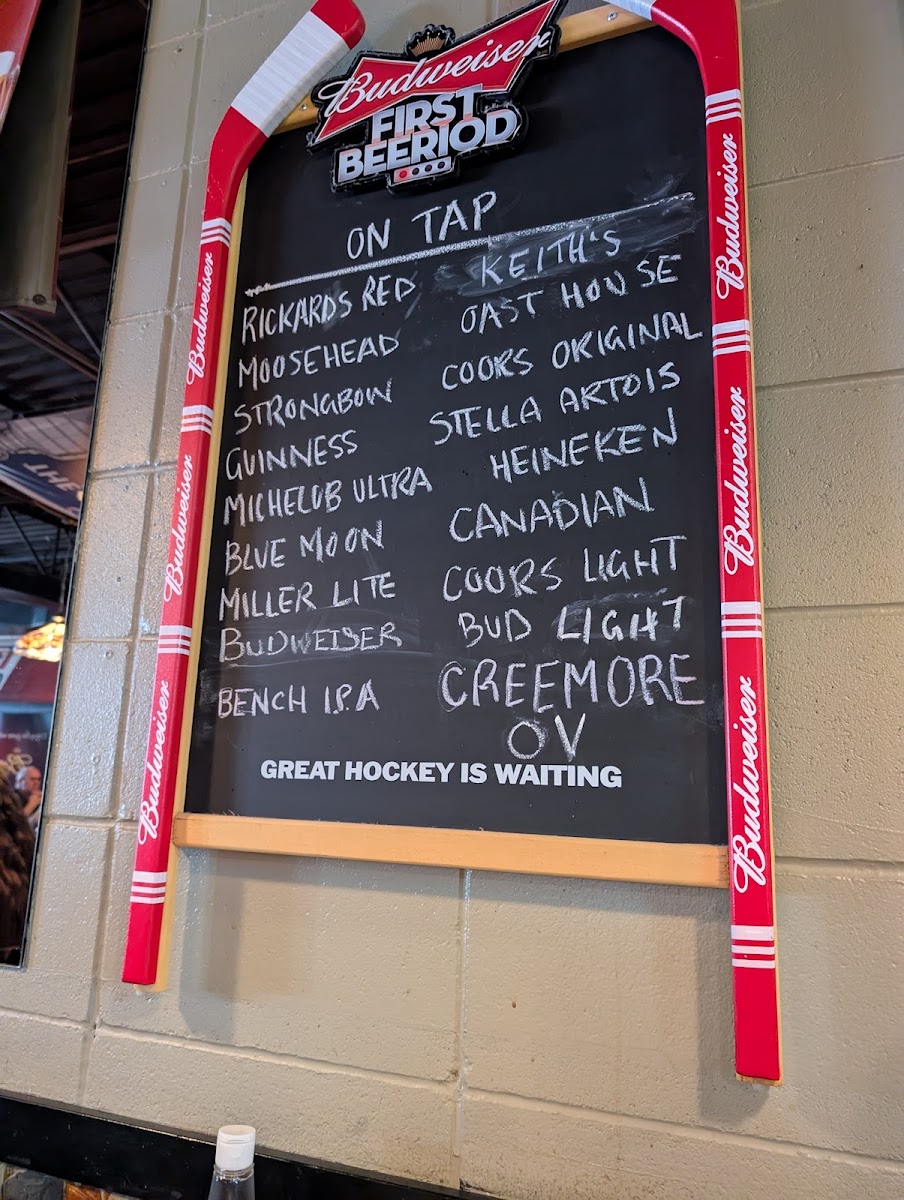 Budweiser
FIRST
BEERIOD
ON TAP
RICKARDS RED
MOOSEHEAD
STRONGBOW
GUINNESS
MICHELOB ULTRA
BLUE MOON
MILLER LITE
BUDWEISER
BENCH I.P.A
KEITH'S
OAST HOUSE
COORS ORIGINAL
STELLA ARTOIS
HEINEKEN
CANADIAN
COORS LIGHT
BUD LIGHT
CREEMORE
OV
GREAT HOCKEY IS WAITING
Budweiser
Budweiser
Budweiser
Budweiser
Budweiser
Budweiser